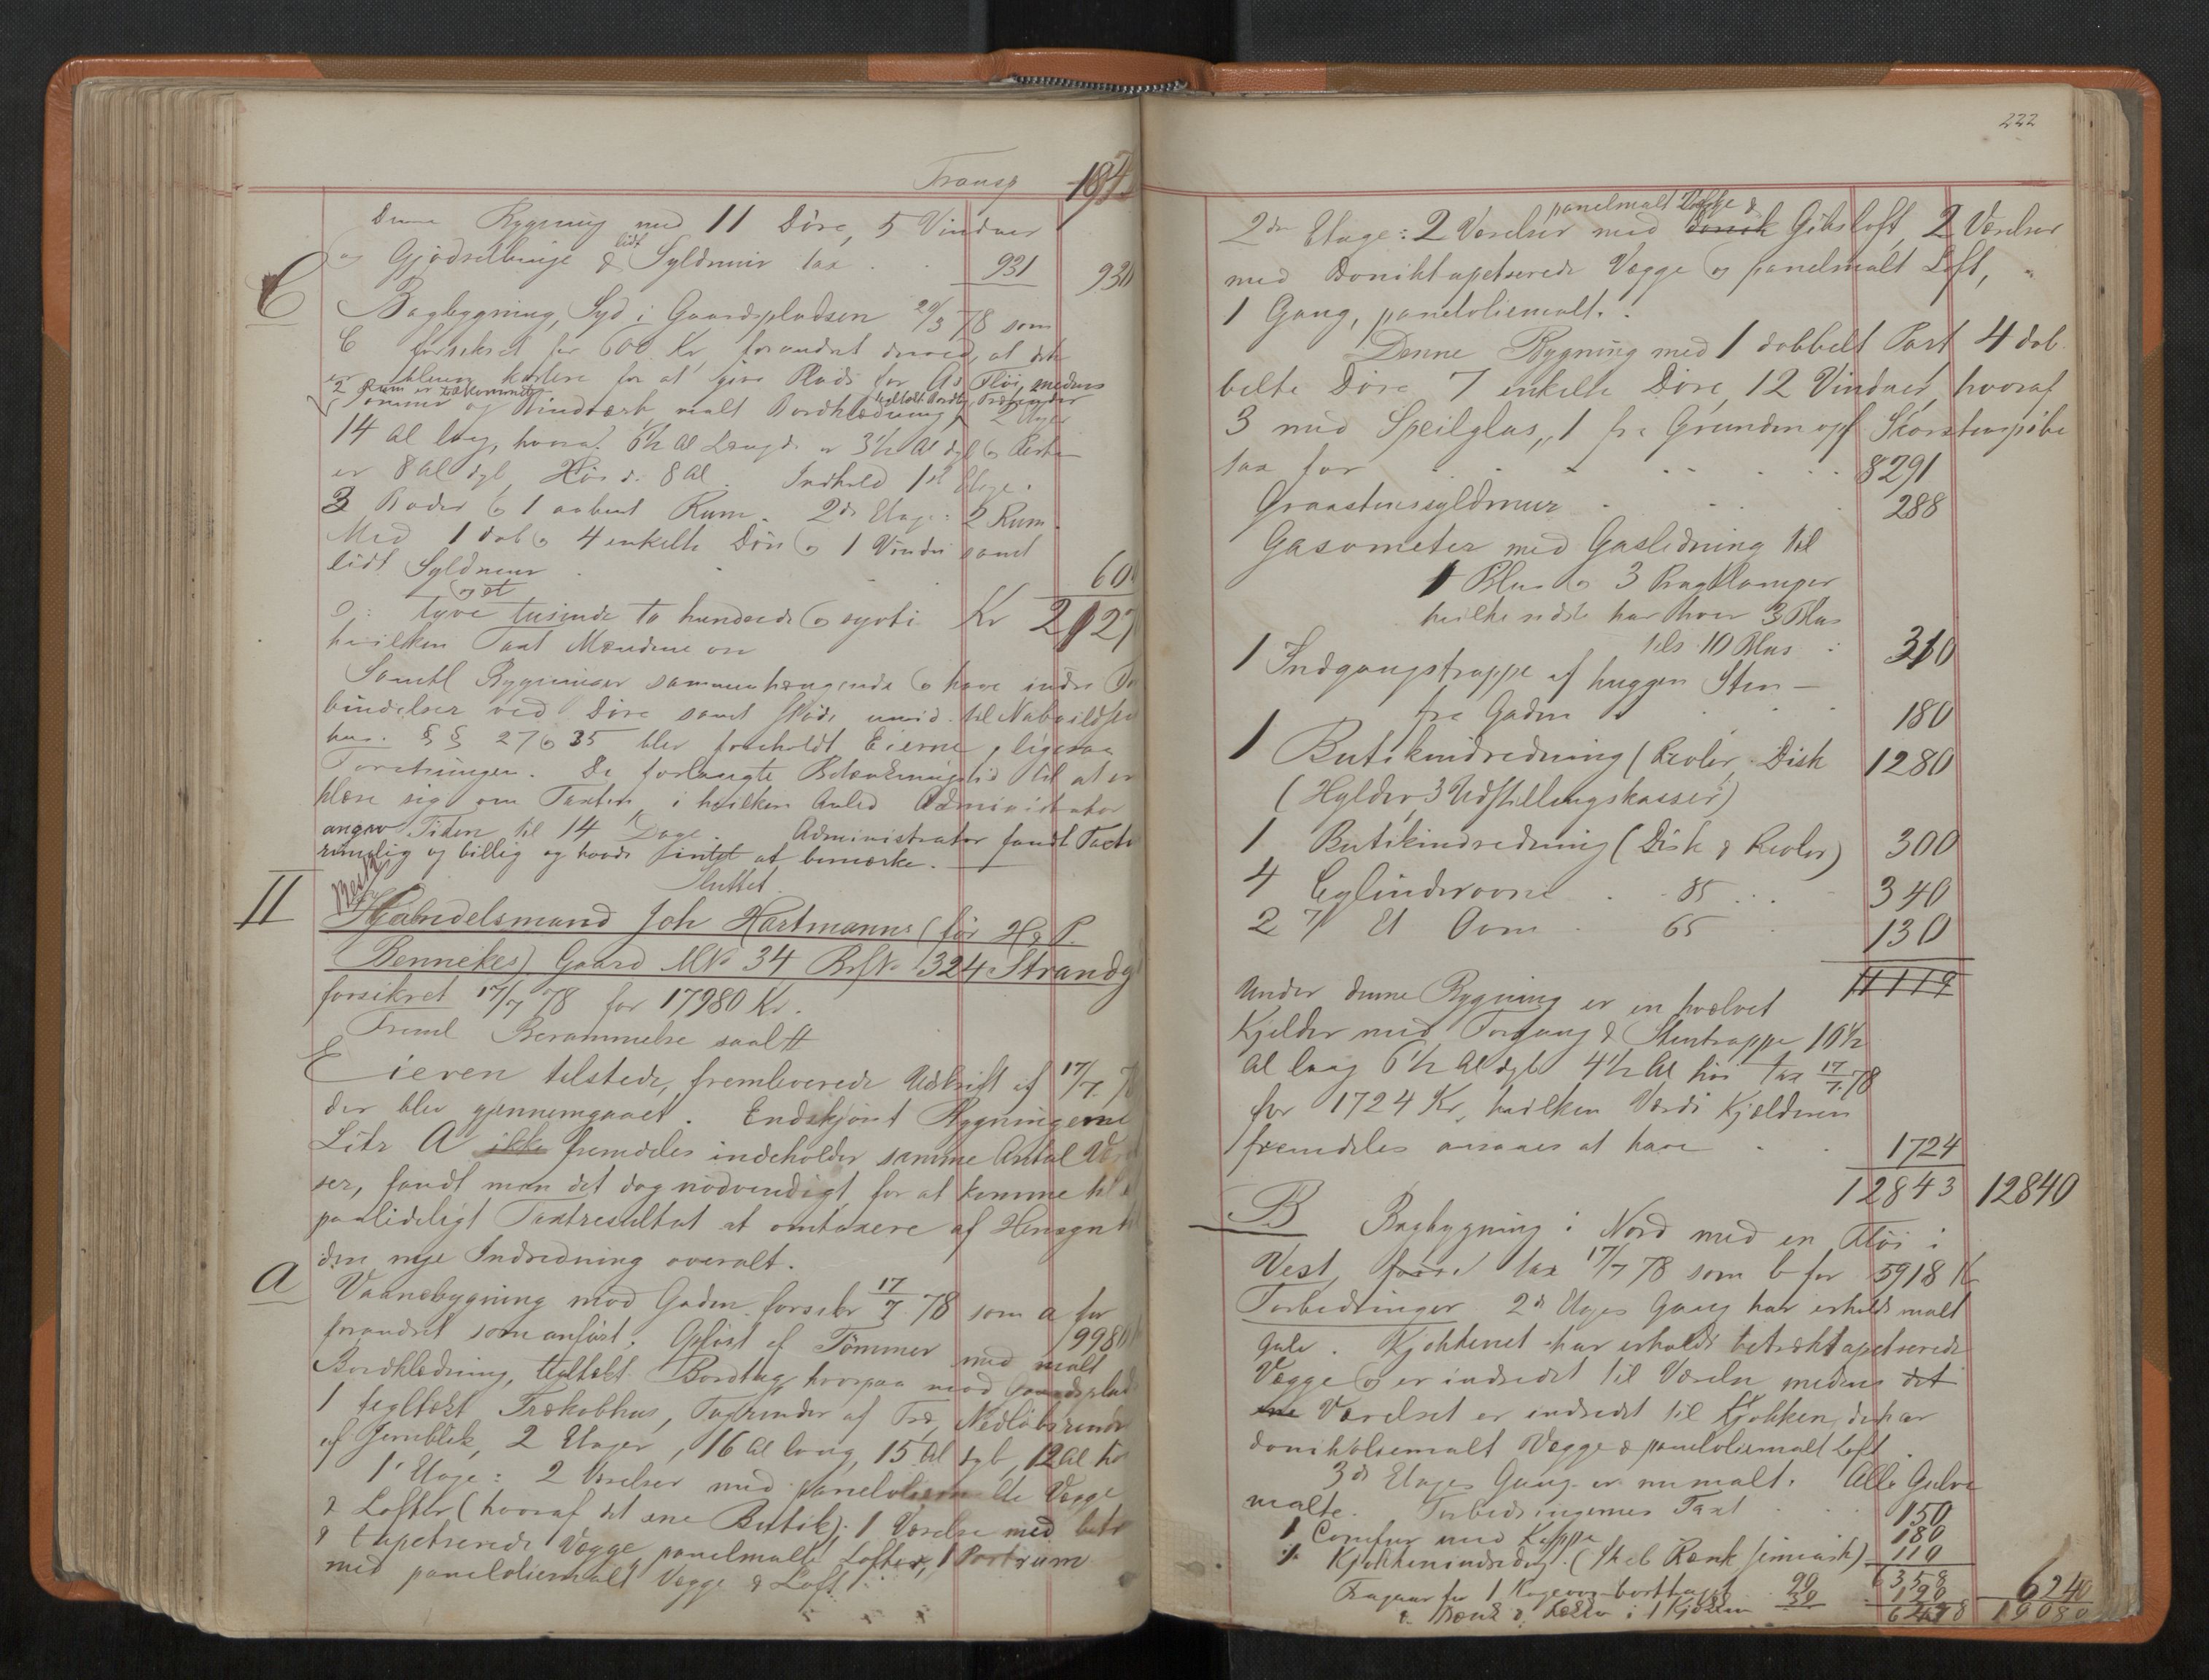 Transp 194
Denne Bygning med 11 Døre, 5 Vinduer
og Gjødselbinge & lidt Syldmur tax . . 931 930
C Bagbygning, Syd i Gaardspladsen 29/3 78 som
C forsikret for 600 Kr, forandret derved, at den
er bleven kortere for at give Plads for As Fløi, medens
2 Rum er tilkommet
Tømmer og Bindværk, malt Bordklædning, 2 Etager
14 Al lang, hvoraf 6½ Al Længde er 3½ Al dyb og Resten
er 8 Al dyb, Høide 8 Al. Indhold 1st Etage:
3 Boder og 1 aabent Rum. 2den Etage: 2 Rum.
Med 1 dob og 4 enkelte Døre og 1 Vindu samt
lidt Syldmur . . . 60
og et
ɔ: tyve tusinde to hundrede og syvti Kr 2127
hvilken Taxt Mændene
Samtl Bygninger sammenhængende og have indre For
bindelser ved Døre samt støde umid. til Naboildsted
hus. §§ 27 og 35 blev foreholdt Eierne, ligesaa
Foretningen. De forlangte Betænkningstid til at er
klære sig om Taxten, i hvilken Anled Administrator
angav Tiden til 14 Dage. Administrator fandt Taxten
rimelig og billig og havde intet at bemærke.
Sluttet.
II Handelsmand Joh Hartmanns (før H. P.
Bennekes) Gaard MNo 34 BrfNo 1324 Strandg
forsikret 17/7 78 for 17980 Kr.
Freml Berammelse saal
Eieren tilstede, fremleverede Udskrift af 17/7 78
der blev gjennemgaaet. Endskjønt Bygningerne
Litr A ikke fremdeles indeholder samme Antal Værel
ser, fandt man det dog nødvendigt, for at komme til et
paalideligt Taxtresultat at omtaxere af Hensyn til
den nye Indredning overalt.
A Vaanebygning mod Gaden forsikr 17/7 78 som a for
forandret som anført. Opført af Tømmer 9980
Bordklædning, teglte Bordtag, hvorpaa mod Gaardsplads
1 tegltækt Trækobhus, Tagrender af Træ, Nedløbsrender
af Jernblik, 2 Etager, 16 Al lang, 15 Al dyb, 12 Al høi
1' Etage: 2 Værelser med paneloliemalte Vægge
& Lofter (hvoraf det ene Butik), 1 Værelse med betr
tapetserede Vægge, panelmalte Lofter, 1 Portrum
med paneloliemalt Vægge & Loft
222
panelmalt Vægge &
2den Etage: 2 Værelser med donik Gibsloft, 2 Værelser
med Doniktapetserede Vægge og panelmalt Loft,
1 Gang, paneloliemalt.
Denne Bygning med 1 dobbelt Port 4 dob
belte Døre 7 enkelte Døre, 12 Vinduer, hvoraf
3 med Speilglas, 1 fra Grunden opf Skorstenspibe
tax for . . . . 8291
Graastenssyldmur . . . 288
Gasometer med Gasledning til
1 Blus og 3 Bragtlamper
hvilke sidste har hver 3 Blus
tils 10 Blus : 310
1 Indgangstrappe af huggen Sten
fra Gaden . . . 180
1 Butikindredning (Reoler, Disk 1280
(Hylder, 3 Udstillingskasser)
1 Butikindredning (Disk & Reoler) 300
4 Cylinderovne . 85 . . . 340
2 7/ Et Ovne . 65 . 130
11119
Under denne Bygning er en hvælvet
Kjelder med Forgang & Stentrappe 10½
Al lang 6½ Al dyb 4½ Al høi tax 17/7 78
for 1724 Kr, hvilken Værdi Kjælderen
fremdeles ansaaes at have . . 1724
12843 12840
B Bagbygning i Nord med en Fløi i
Vest, tax 17/7 78 som b for 5918 Kr
Forbedringer. 2den Etages Gang har erholdt malt
Gulv. Kjøkkenet har erholdt betræktapetserede
Vægge og er indredet til Værelse medens det
ene Værelset er indredet til Kjøkken, der har
donikoliemalt Vægge & paneloliemalt Loft.
3die Etages Gang er nu malt. Alle Gulve
malte. Forbedringernes Taxt . . 150
1 Comfur med Kappe 180
1 Kjøkkenindredn. (Skab Bænk) 110
6358
Fragaar for 1 Kogeovn borttaget . 90 120 6240
& Bænk & i 1 Kjøkken 30 6238 19080